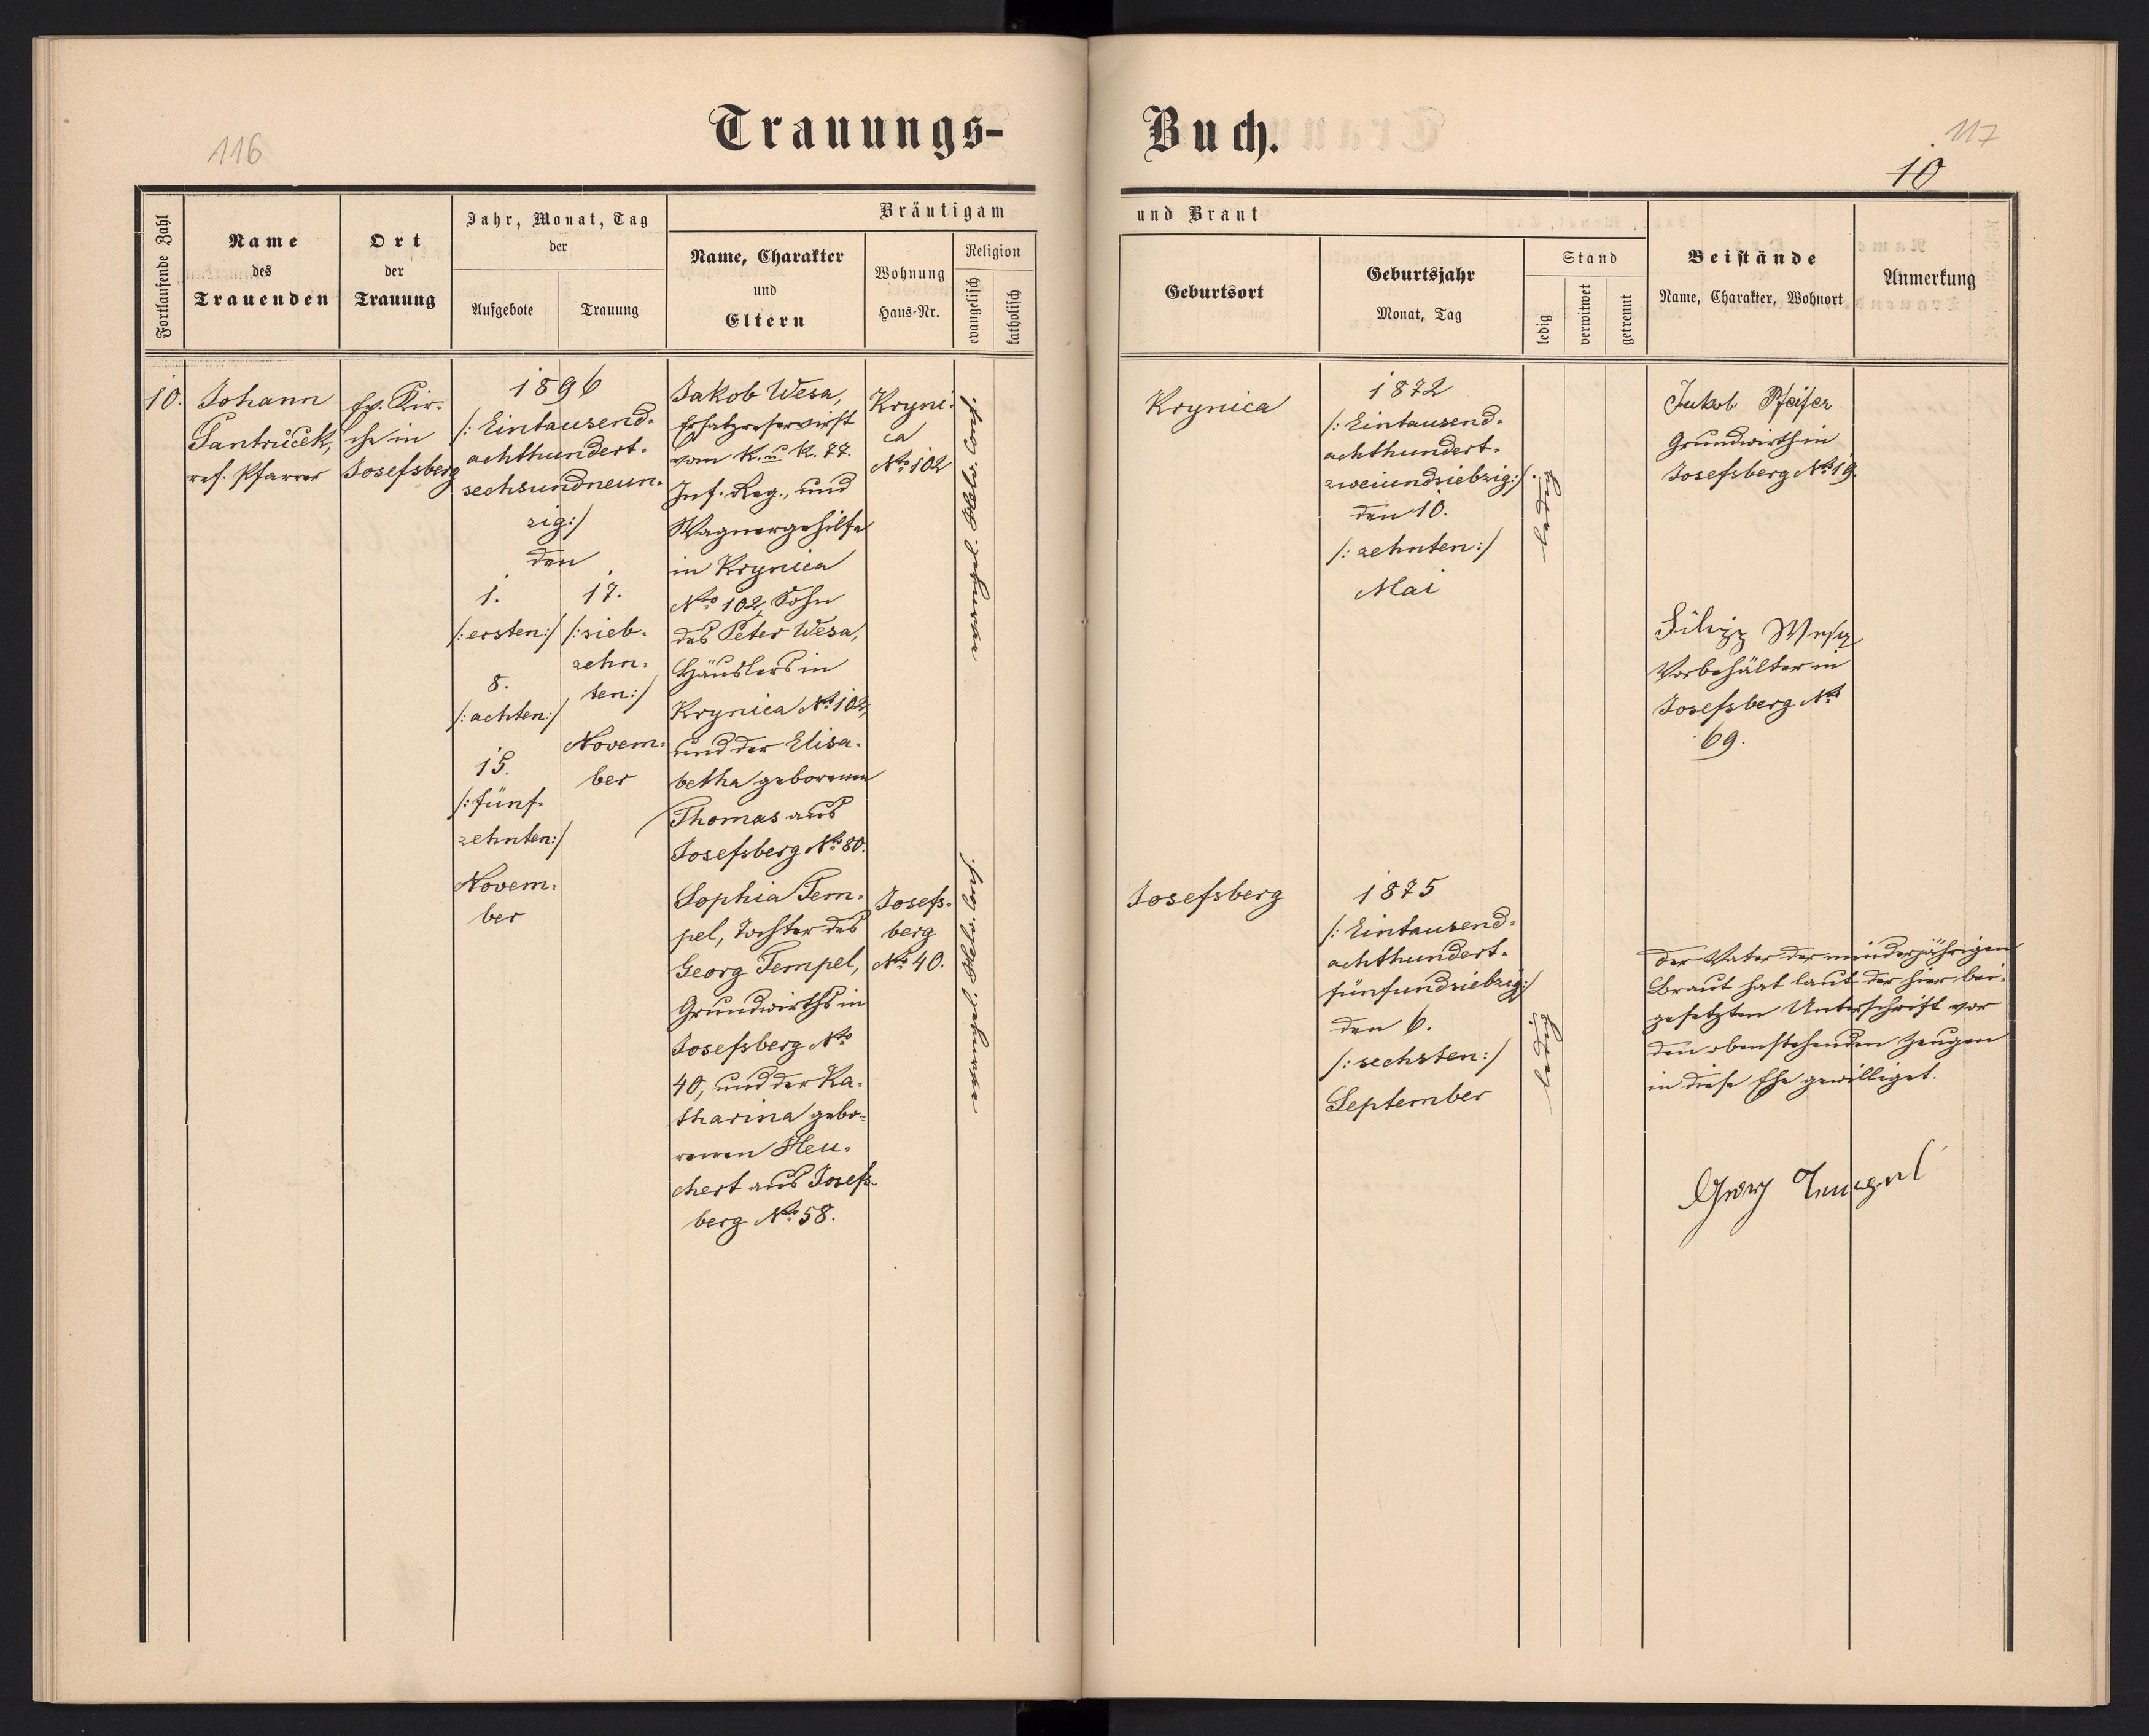 116
Trauungs-
Fortlaufende Zahl
Name
des
Trauenden
Ort
der
Trauung
Jahr, Monat, Tag
der
Aufgebote
Trauung
Bräutigam
Name, Charakter
und
Eltern
Wohnung
Haus-Nr.
Religion
evangelisch
katholisch
10.
Johann
Pantrůček,
ref. Pfarrer
ev. Kir-
che in
Josefsberg
1896
/: Eintausend-
achthundert-
sechsundneun-
zig:/
den
1.
/:ersten:/
8.
/:achten:/
15.
/:fünf-
zehnten:/
Novem-
ber
17.
/:sieb-
zehn-
ten:/
Novem-
ber
Jakob Wesa,
Ersatzreservist
vom K. u. K. 77.
Inf. Reg., und
Wagnergehilfe
in Krynica
No 102, Sohn
des Peter Wesa,
Häuslers in
Krynica No 102,
und der Elisa-
betha geborenen
Thomas aus
Josefsberg No 80.
Kryni-
ca
No 102
evangel. Helv. Conf.
Sophia Tem-
pel, Tochter des
Georg Tempel,
Grundwirths in
Josefsberg No
40, und der Ka-
tharina gebo-
renen Heu-
chert aus Josefs-
berg No 58.
Josefs-
berg
No 40.
evangel. Helv. Conf.
Buch.
117
10
und Braut
Geburtsort
Geburtsjahr
Monat, Tag
Stand
ledig
verwitwet
getrennt
Beistände
Name, Charakter, Wohnort
Anmerkung
Krynica
1872
/: Eintausend-
achthundert-
zweiundsiebzig:/
den 10.
/: zehnten:/
Mai
ledig
Jakob Pfeifer
Grundwirth in
Josefsberg No 19.
Filipp Wesa
Vorbehälter in
Josefsberg No
69.
Josefsberg
1875
/: Eintausend-
achthundert-
fünfundsiebzig:/
den 6.
/: sechsten:/
September
ledig
Der Vater der minderjährigen
Braut hat laut der hier bei-
gesetzten Unterschrift vor
den obenstehenden Zeugen
in diese Ehe gewilliget.
Georg Tempel